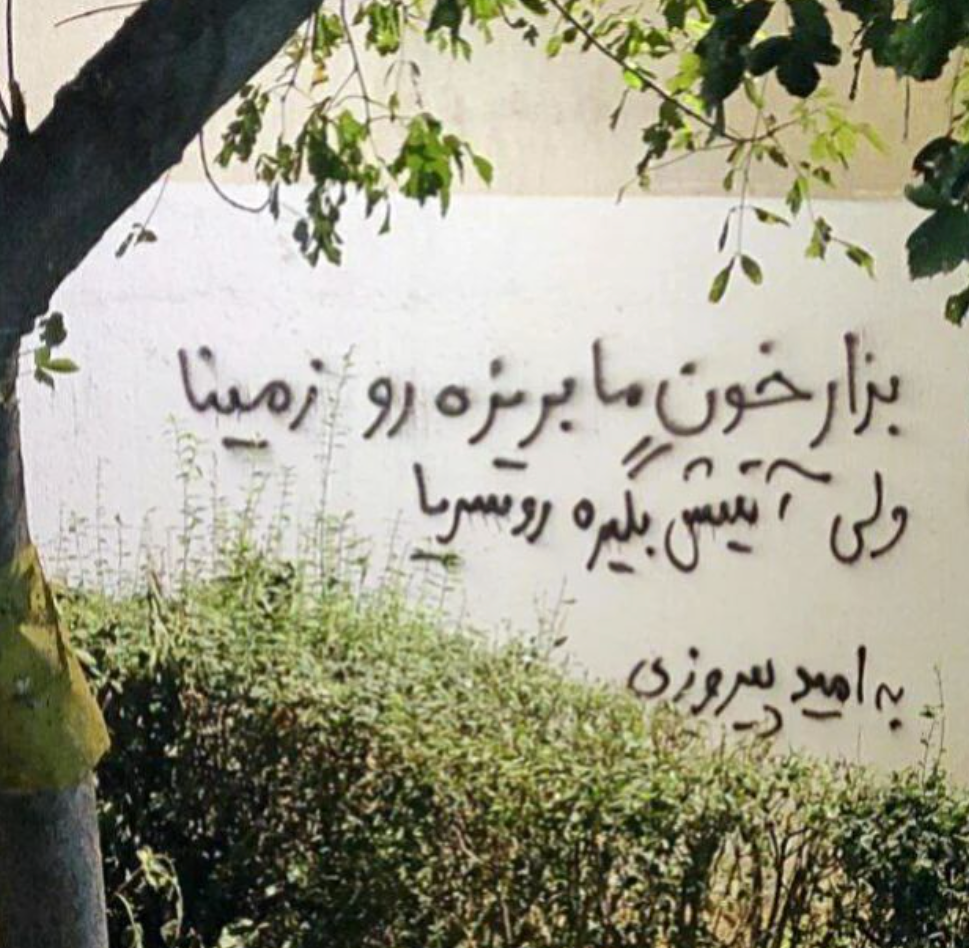 بزار خونِ ما بریزه رو زمینا
ولی آتیش بگیره روسریا
به امید پیروزی